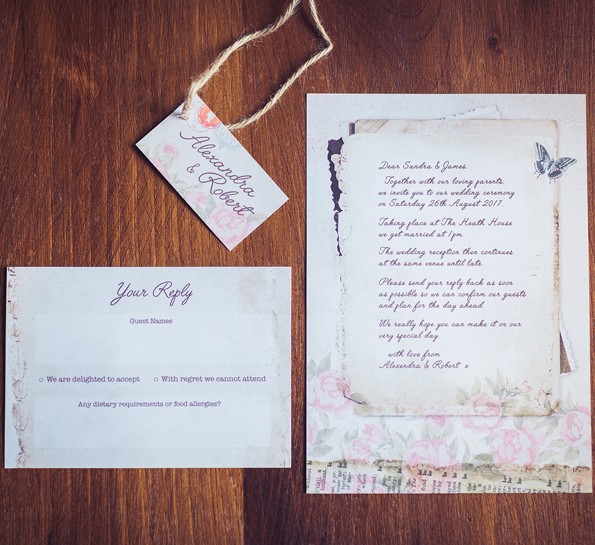 Alexandra
& Robert
Dear Sandra & James,
Together with our loving parents,
we invite you to our wedding ceremony
on Saturday 26th August 2017.
Taking place at The Heath House
we get married at 1pm.
The wedding reception then continues
at the same venue until late.
Please send your reply back as soon
as possible so we can confirm our guests
and plan for the day ahead.
We really hope you can make it on our
very special day.
with love from
Alexandra & Robert x
Your Reply
Guest Names
We are delighted to accept
With regret we cannot attend
Any dietary requirements or food allergies?